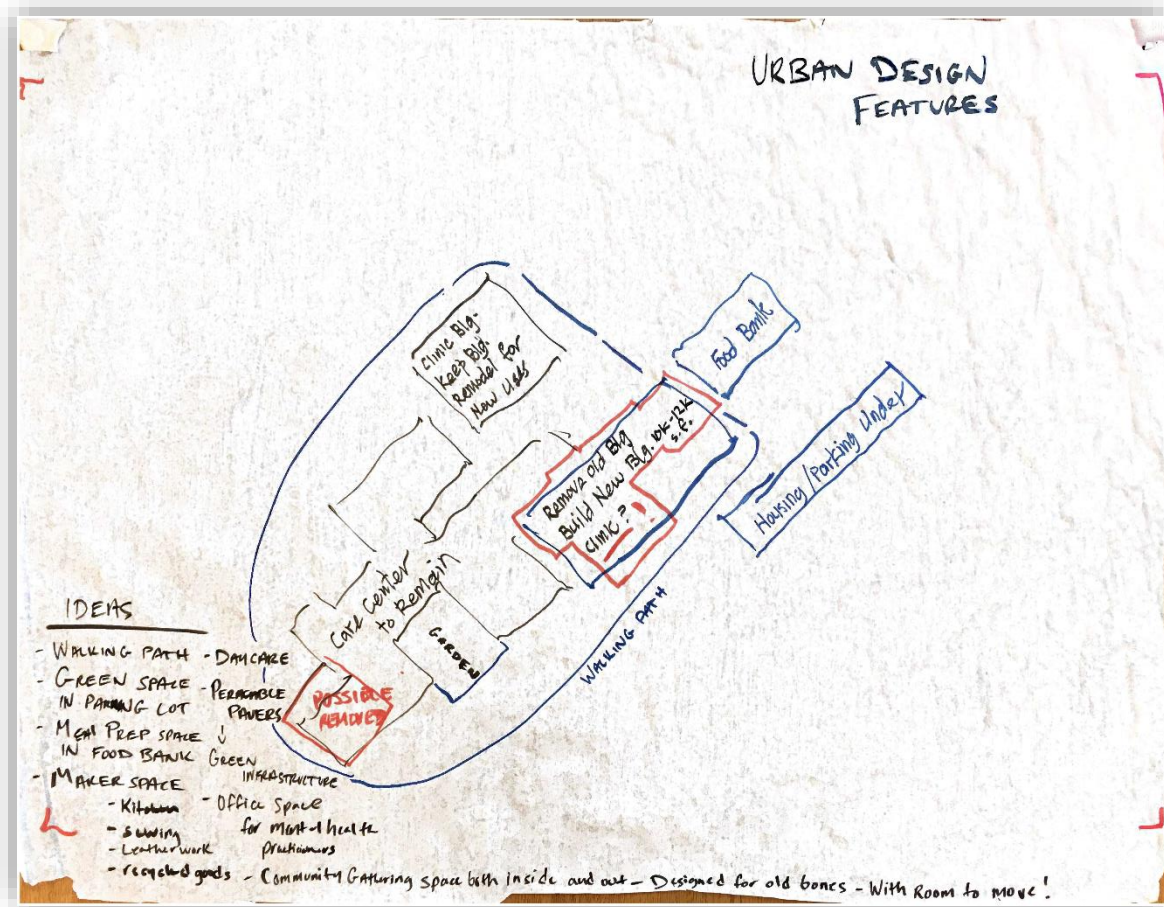 URBAN DESIGN
FEATURES
Clinic Blg-
Keep Blg.
Remodel for
New Uses
Food Bank
Remove Old Blg
Build New Blg. 10K-12K
s.f.
Clinic?
Housing/Parking Under
Care Center
to Remain
GARDEN
WALKING PATH
POSSIBLE
REMOVED
IDEAS
- WALKING PATH
- GREEN SPACE
IN PARKING LOT
- MEAL PREP SPACE
IN FOOD BANK
- MAKER SPACE
- Kitchen
- sewing
- Leatherwork
- recycled goods
- DAYCARE
- PERMEABLE
PAVERS
GREEN
INFRASTRUCTURE
- Office Space
for mental health
practioners
- Community Gathuring space both inside and out - Designed for old bones - With Room to move!